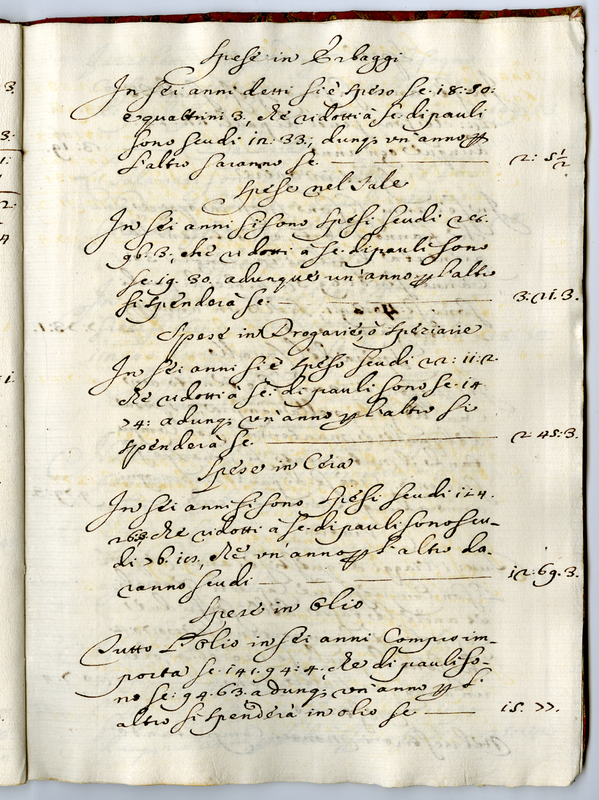 3.
3.
1:
2:
4
1.
Spese in Erbaggi
In sei anni detti si è speso sc. 18: 50:
e quattrini 3, che ridotti à sc. di pauli
sono scudi 12: 33:, dunq; un'anno p
l'altro saranno sc. 2: 5½
Spese nel Sale
In sei anni si sono spesi scudi
96. 3., che ridotti à sc. di pauli sono
sc. 19. 30. adunque un'anno p l'altro
si spenderà sc. — 3: 21. 3.
Spese in Drogarie, ò speziarie
In sei anni si è speso scudi 22: 11: 2.
che ridotti à sc: di pauli sono sc. 14
74: adunq; un'anno p l'altro si
spenderà sc. — 2 45: 3.
Spese in Cera
In sei anni si sono spesi scudi 114.
che ridotti à sc. di pauli sono scu-
di 76. che un'anno p l'altro sa-
ranno scudi — 12. 69. 3.
Spese in Olio
Tutto l'olio in sei anni Compro im-
porta sc. 141. 94: 4., che di pauli so-
no sc: 94. 63. adunq; un'anno p l'
altro si spenderà in olio sc — 15. 77.